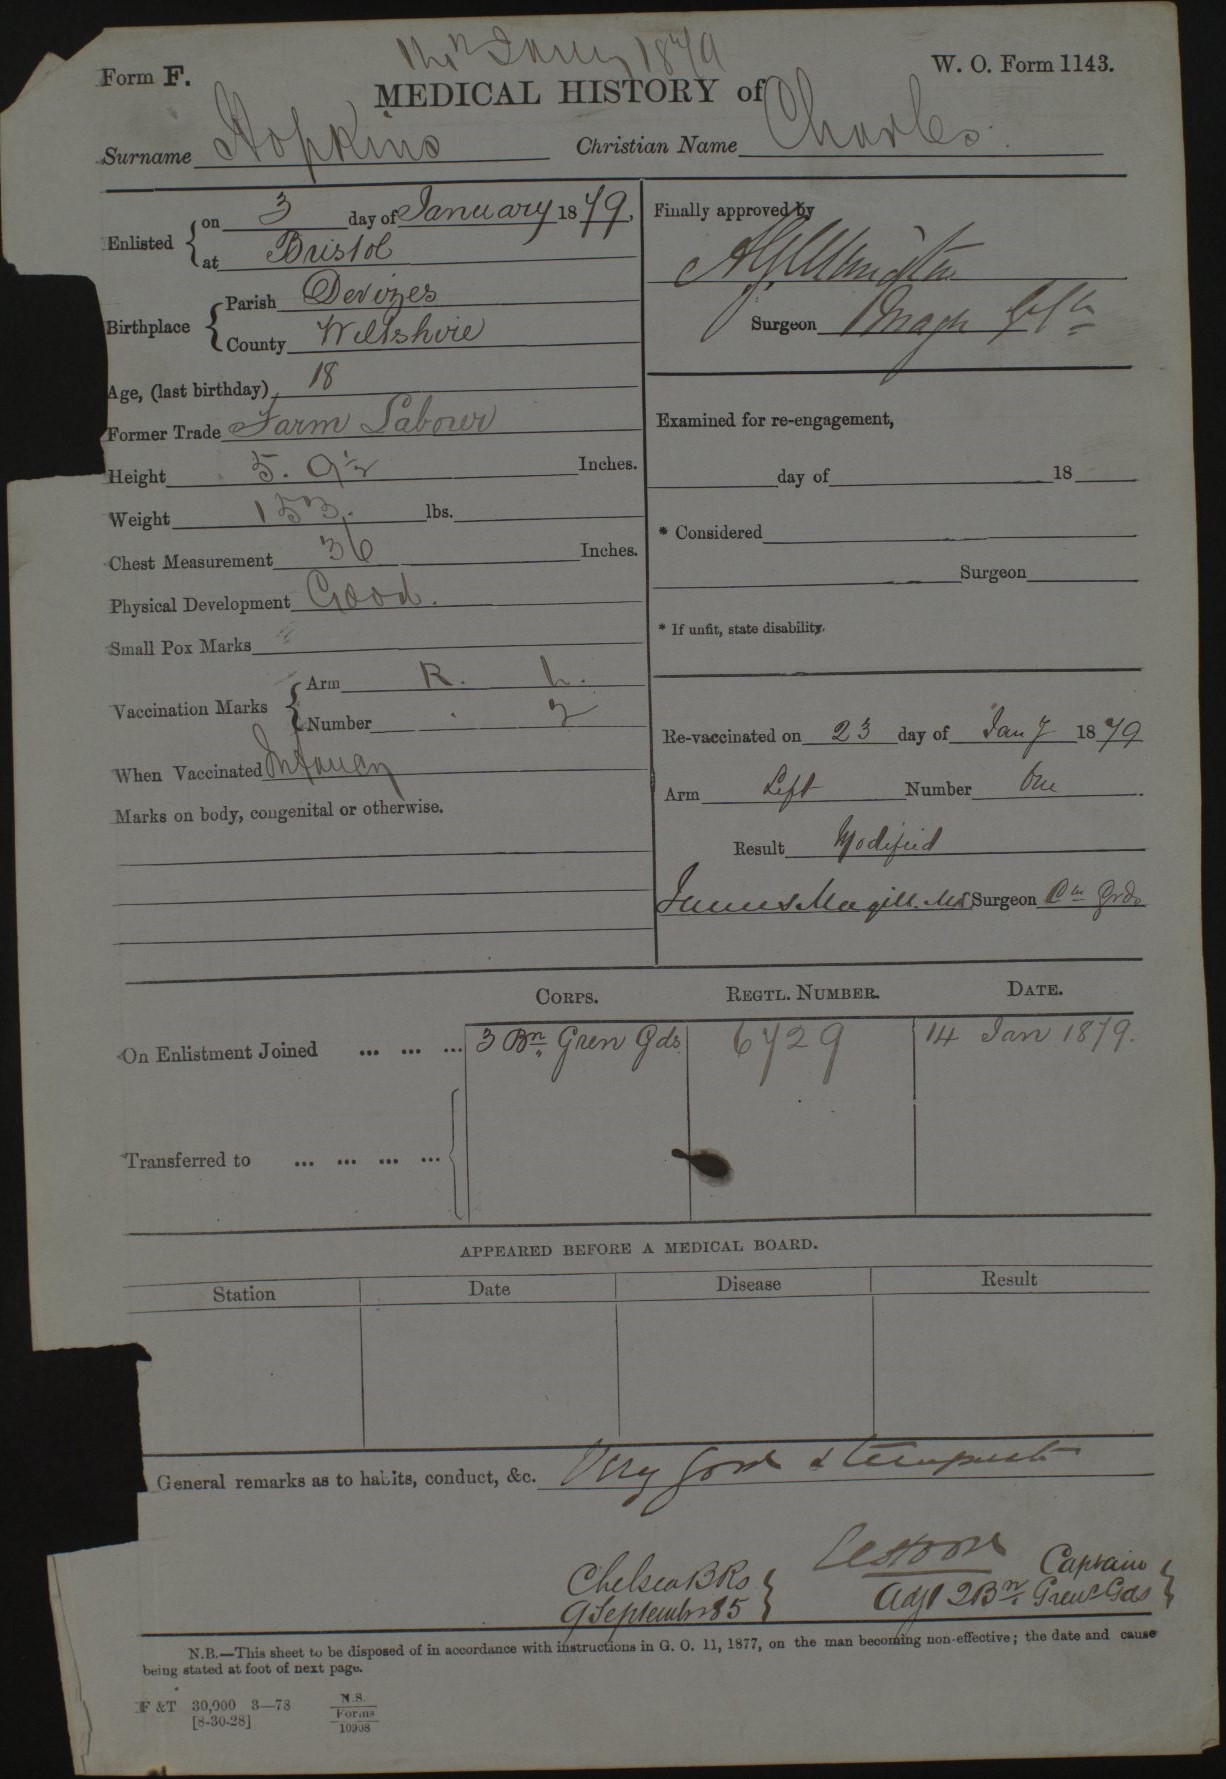 Jany 1879
Form F.
W. O. Form 1143.
MEDICAL HISTORY of
Surname Hopkins Christian Name Charles.
Enlisted { on 3 day of January 1879,
at Bristol
Birthplace { Parish Devizes
County Wiltshire
Age, (last birthday) 18
Former Trade Farm Labourer
Height 5. 9½ Inches.
Weight 153. lbs.
Chest Measurement 36 Inches.
Physical Development Good.
Small Pox Marks
Vaccination Marks { Arm R. L.
Number 2
When Vaccinated Infancy
Marks on body, congenital or otherwise.
Finally approved by
Surgeon
Examined for re-engagement,
day of 18
* Considered
Surgeon
* If unfit, state disability.
Re-vaccinated on 23 day of Jany 1879
Arm Left Number One
Result Modified
James Magill. MD Surgeon Cm Grds
CORPS. REGTL. NUMBER. DATE.
On Enlistment Joined ... ... ... 3 Bn Gren Gds 6729 14 Jan 1879.
Transferred to ... ... ... ...
APPEARED BEFORE A MEDICAL BOARD.
Station Date Disease Result
General remarks as to habits, conduct, &c. Very good & temperate
Captain
Chelsea BKs
Adjt 2 Bn. Gren Gds
9 September 85
N.B.—This sheet to be disposed of in accordance with instructions in G. O. 11, 1877, on the man becoming non-effective; the date and cause
being stated at foot of next page.
F &T 30,000 3—78
[8-30-28]
N.S.
Forms
10908